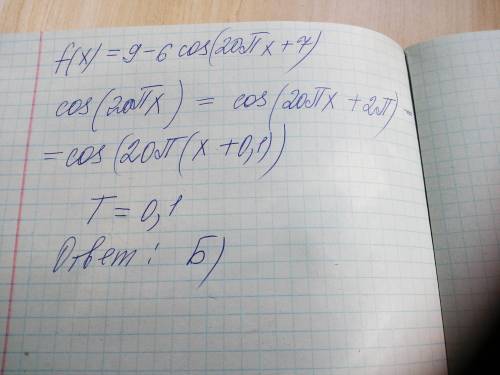 f(x) = 9 - 6 cos(20πx + 7)
cos(20πx) = cos(20πx + 2π) =
= cos(20π(x + 0,1))
T = 0,1
Ответ: Б)